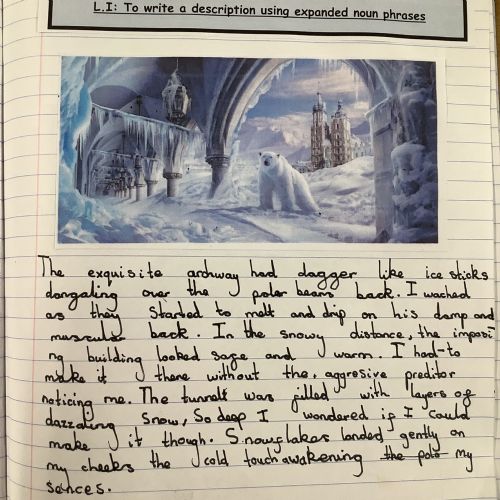 L.I: To write a description using expanded noun phrases
The exquisite archway had dagger like ice sticks
dangaling over the polar bears back. I wached
as they started to melt and drip on his damp and
muscular back. In the snowy distance, the imposi
ng building looked sage and warm. I had to
make it there without the aggresive preditor
noticing me. The tunnels was filled with layers of
dazzaling snow, So deep I wondered if I could
make it though. Snowflakes landed gently on
my cheeks the cold touch awakening the polo my
sances.